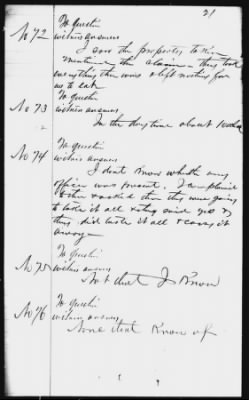 21
To question
No 72 witness answers
I saw the property taken
mentioned in the claim - they took
everything there was & left nothing for
us to eat
To question
No 73 witness answers
In the day time about
To question
No 74 witness answers
I dont Know whether any
officer was present. I complained
& asked them they were going
to take it all & they said yes &
they did take it all & carry it
away -
To question
No 75 witness answers
Not that I Know
To question
No 76 witness answers
None that Know of